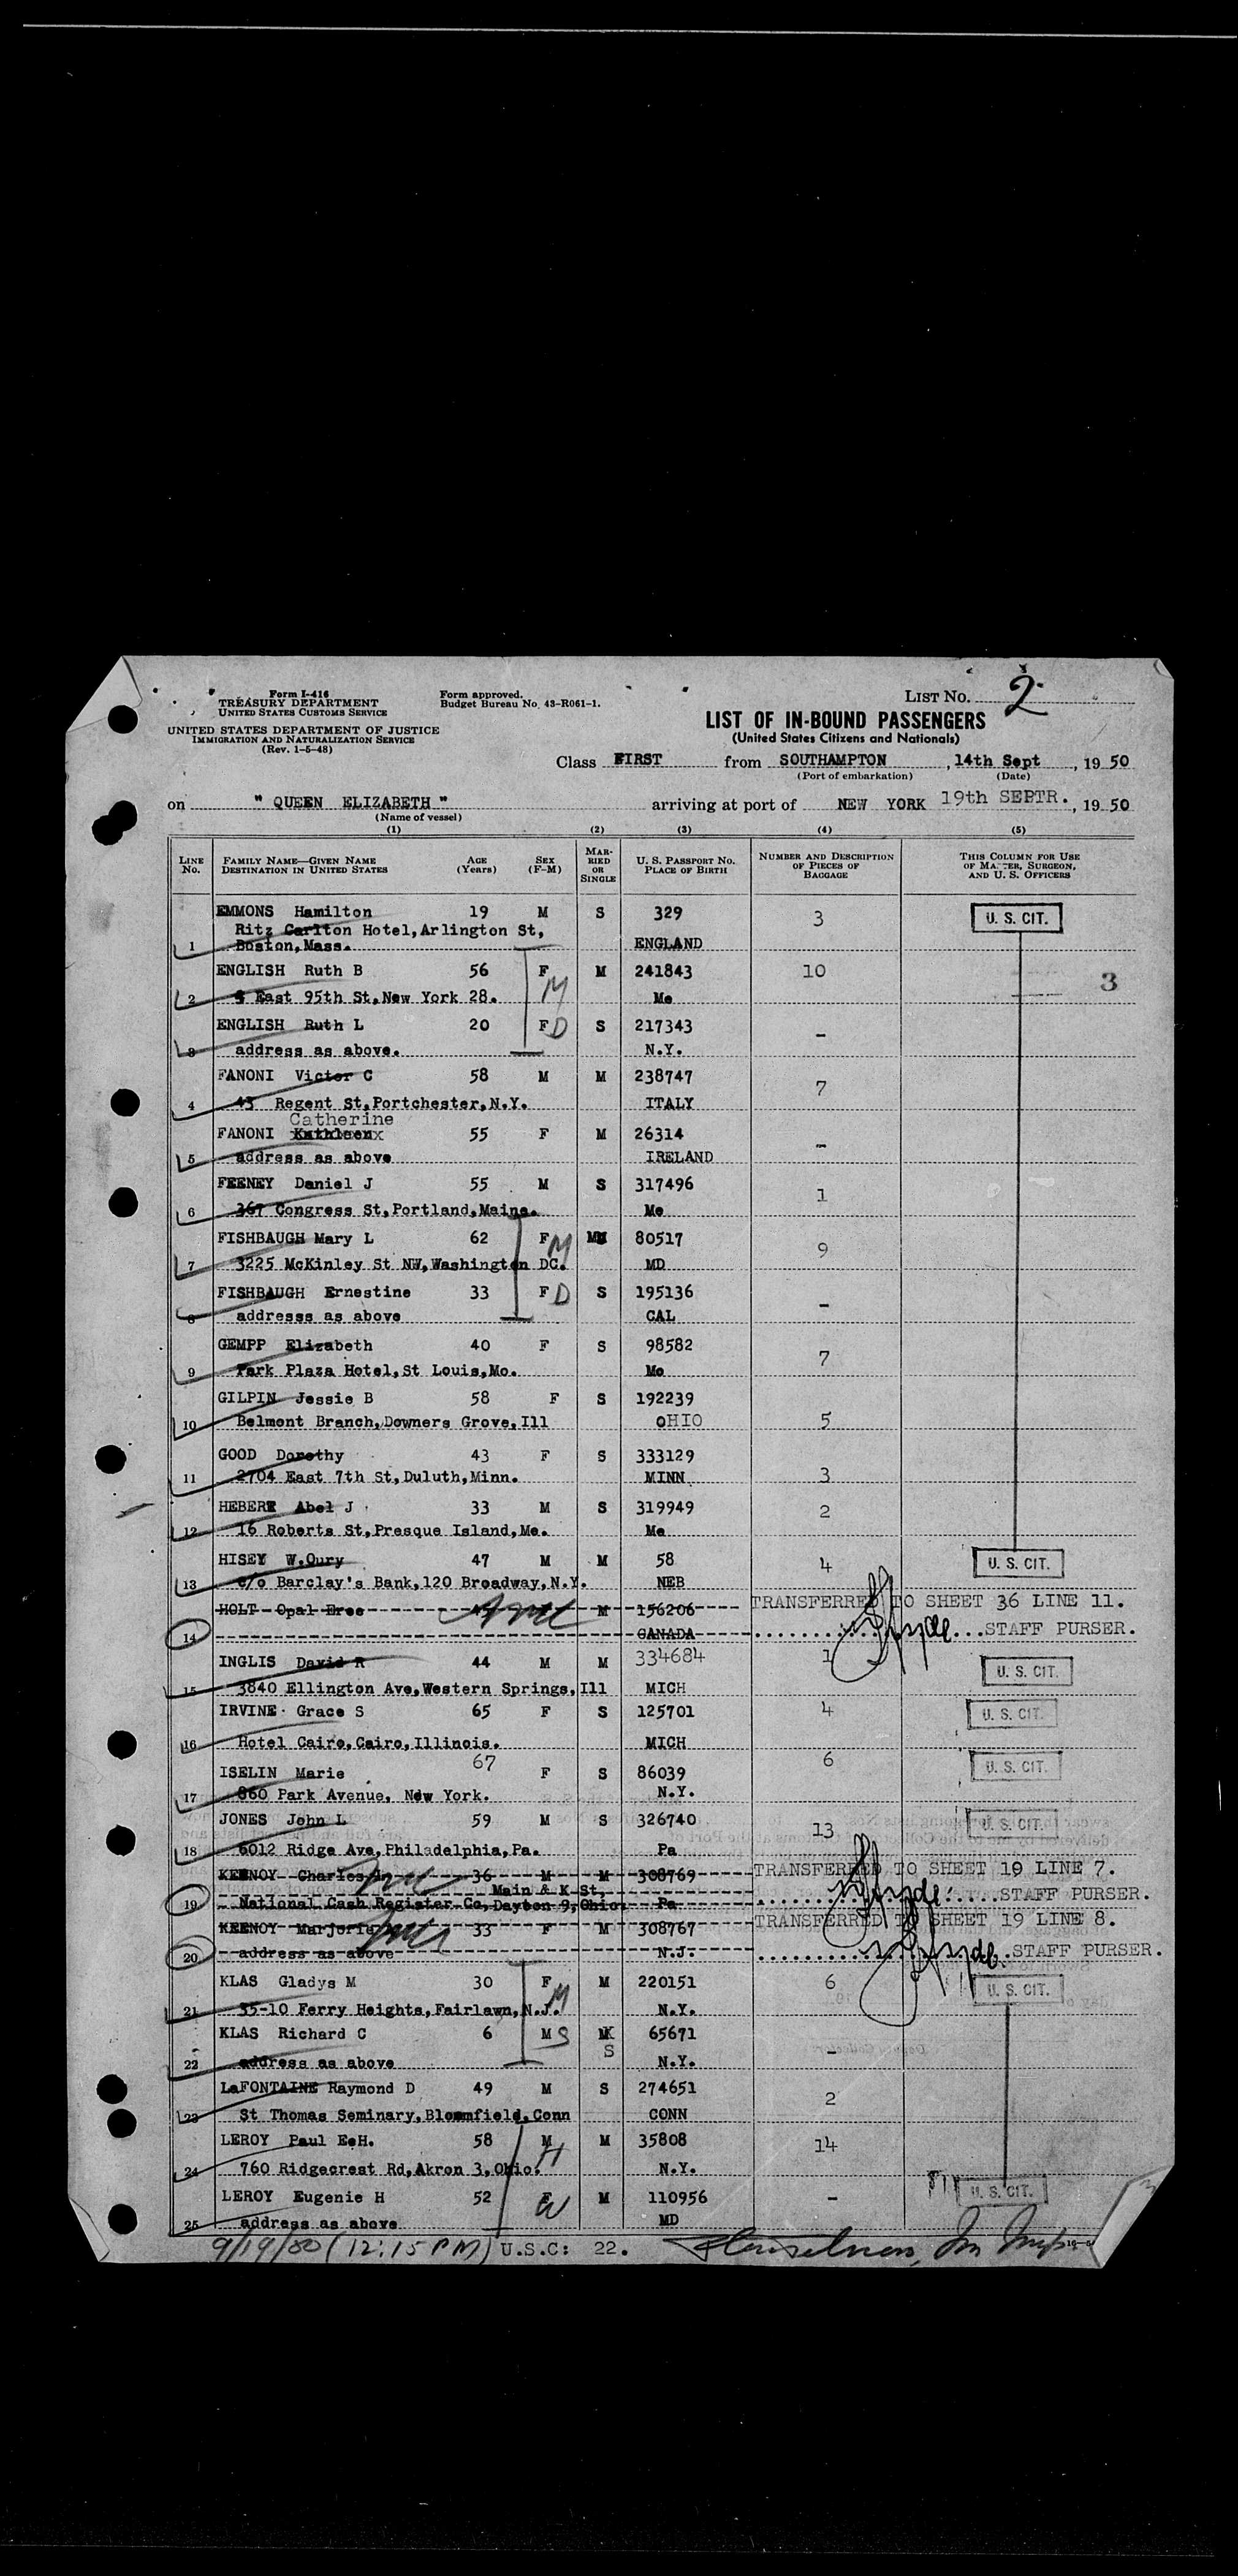 Form I-416
TREASURY DEPARTMENT
UNITED STATES CUSTOMS SERVICE
UNITED STATES DEPARTMENT OF JUSTICE
IMMIGRATION AND NATURALIZATION SERVICE
(Rev. 1-5-48)
Form approved.
Budget Bureau No. 43-R061-1.
LIST NO. 2
LIST OF IN-BOUND PASSENGERS
(United States Citizens and Nationals)
Class FIRST from SOUTHAMPTON, 14th Sept, 19 50
(Port of embarkation) (Date)
on " QUEEN ELIZABETH " arriving at port of NEW YORK 19th SEPTR., 19 50
(Name of vessel)
(1) (2) (3) (4) (5)
LINE NO. FAMILY NAME—GIVEN NAME DESTINATION IN UNITED STATES AGE (Years) SEX (F-M) MARRIED OR SINGLE U. S. PASSPORT NO. PLACE OF BIRTH NUMBER AND DESCRIPTION OF PIECES OF BAGGAGE THIS COLUMN FOR USE OF MASTER, SURGEON, AND U. S. OFFICERS
EMMONS Hamilton 19 M S 329 3 U. S. CIT.
Ritz Carlton Hotel, Arlington St,
1 Boston, Mass. ENGLAND
ENGLISH Ruth B 56 F M 241843 10
M 3
2 5 East 95th St, New York 28. Me
ENGLISH Ruth L 20 F D S 217343 -
3 address as above. N.Y.
FANONI Victor C 58 M M 238747 7
4 43 Regent St, Portchester, N.Y. ITALY
Catherine
FANONI Kathleenx 55 F M 26314 -
5 address as above IRELAND
FEENEY Daniel J 55 M S 317496 1
6 367 Congress St, Portland, Maine. Me
FISHBAUGH Mary L 62 F M 80517 9
7 3225 McKinley St NW, Washington DC. MD
FISHBAUGH Ernestine 33 F D S 195136 -
8 addresss as above CAL
GEMPP Elizabeth 40 F S 98582 7
9 Park Plaza Hotel, St Louis, Mo. Mo
GILPIN Jessie B 58 F S 192239 5
10 Belmont Branch, Downers Grove, Ill OHIO
GOOD Dorothy 43 F S 333129 3
11 2704 East 7th St, Duluth, Minn. MINN
HEBERT Abel J 33 M S 319949 2
12 16 Roberts St, Presque Island, Me. Me
HISEY W.Oury 47 M M 58 4 U. S. CIT.
13 c/o Barclay's Bank, 120 Broadway, N.Y. NEB
HOLT Opal Eree M 156206 TRANSFERRED TO SHEET 36 LINE 11.
14 CANADA STAFF PURSER.
INGLIS David R 44 M M 334684 1 U. S. CIT.
15 3840 Ellington Ave, Western Springs, Ill MICH
IRVINE Grace S 65 F S 125701 4 U. S. CIT.
16 Hotel Cairo, Cairo, Illinois. MICH
ISELIN Marie 67 F S 86039 6 U. S. CIT.
17 860 Park Avenue, New York. N.Y.
JONES John L 59 M S 326740 13 U. S. CIT.
18 6012 Ridge Ave, Philadelphia, Pa. Pa
KEENOY Charles 36 M M 308769 TRANSFERRED TO SHEET 19 LINE 7.
Main & K St,
19 National Cash Register Co, Dayton 9, Ohio. Pa STAFF PURSER.
KEENOY Marjorie 33 F M 308767 TRANSFERRED TO SHEET 19 LINE 8.
20 address as above N.J. STAFF PURSER.
KLAS Gladys M 30 F M 220151 6 U. S. CIT.
M
21 35-10 Ferry Heights, Fairlawn, N.J. N.Y.
KLAS Richard C 6 M S 65671 -
S
22 address as above N.Y.
LaFONTAINE Raymond D 49 M S 274651 2
23 St Thomas Seminary, Bloomfield, Conn CONN
LEROY Paul E.H. 58 M M 35808 14
H
24 760 Ridgecrest Rd, Akron 3, Ohio. N.Y.
LEROY Eugenie H 52 F M 110956 - U. S. CIT.
W
25 address as above MD
9/19/50 (12:15 PM) U.S.C: 22.